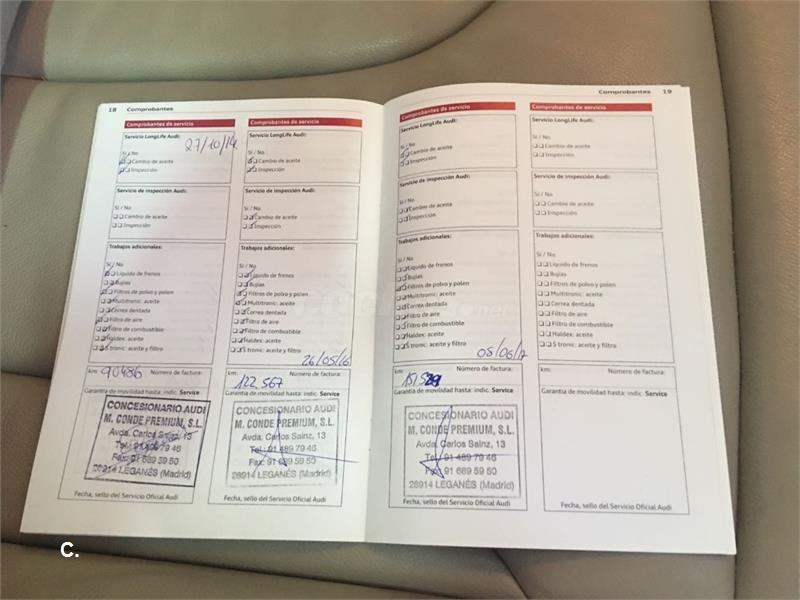 18 Comprobantes
Comprobantes de servicio
Servicio LongLife Audi:
27/10/14
Sí / No
Cambio de aceite
Inspección
Servicio de inspección Audi:
Sí / No
Cambio de aceite
Inspección
Trabajos adicionales:
Sí / No
Líquido de frenos
Bujías
Filtros de polvo y polen
Multitronic: aceite
Correa dentada
Filtro de aire
Filtro de combustible
Haldex: aceite
S tronic: aceite y filtro
km: 90486 Número de factura:
Garantía de movilidad hasta: indic. Service
CONCESIONARIO AUDI
M. CONDE PREMIUM, S.L.
Avda. Carlos Sainz, 13
Tel.: 91 489 79 46
Fax: 91 689 59 50
28914 LEGANÉS (Madrid)
Fecha, sello del Servicio Oficial Audi
Comprobantes de servicio
Servicio LongLife Audi:
Sí / No
Cambio de aceite
Inspección
Servicio de inspección Audi:
Sí / No
Cambio de aceite
Inspección
Trabajos adicionales:
Sí / No
Líquido de frenos
Bujías
Filtros de polvo y polen
Multitronic: aceite
Correa dentada
Filtro de aire
Filtro de combustible
Haldex: aceite
S tronic: aceite y filtro
26/05/16
km: 122,567 Número de factura:
Garantía de movilidad hasta: indic. Service
CONCESIONARIO AUDI
M. CONDE PREMIUM, S.L.
Avda. Carlos Sainz, 13
Tel.: 91 489 79 46
Fax: 91 689 59 50
28914 LEGANÉS (Madrid)
Fecha, sello del Servicio Oficial Audi
Comprobantes 19
Comprobantes de servicio
Servicio LongLife Audi:
Sí / No
Cambio de aceite
Inspección
Servicio de inspección Audi:
Sí / No
Cambio de aceite
Inspección
Trabajos adicionales:
Sí / No
Líquido de frenos
Bujías
Filtros de polvo y polen
Multitronic: aceite
Correa dentada
Filtro de aire
Filtro de combustible
Haldex: aceite
S tronic: aceite y filtro
05/06/17
km: Número de factura:
Garantía de movilidad hasta: indic. Service
CONCESIONARIO AUDI
M. CONDE PREMIUM, S.L.
Avda. Carlos Sainz, 13
Tel.: 91 489 79 46
Fax: 91 689 59 50
28914 LEGANÉS (Madrid)
Fecha, sello del Servicio Oficial Audi
Comprobantes de servicio
Servicio LongLife Audi:
Sí / No
Cambio de aceite
Inspección
Servicio de inspección Audi:
Sí / No
Cambio de aceite
Inspección
Trabajos adicionales:
Sí / No
Líquido de frenos
Bujías
Filtros de polvo y polen
Multitronic: aceite
Correa dentada
Filtro de aire
Filtro de combustible
Haldex: aceite
S tronic: aceite y filtro
km: Número de factura:
Garantía de movilidad hasta: indic. Service
Fecha, sello del Servicio Oficial Audi
C.